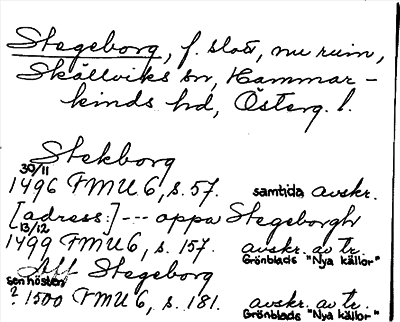 Stegeborg, f. slott, nu ruin,
Skällviks sn, Hammar-
kinds hd, Österg. l.
Stekborg
30/11
1496 FMU 6, s. 57. samtida avskr.
[adress:] --- oppa Stegeborgh
13/12
1499 FMU 6, s. 157. avskr. av tr.
Grönblads "Nya källor"
Aff Stegeborg
sen hösten
? 1500 FMU 6, s. 181. avskr. av tr.
Grönblads "Nya källor"